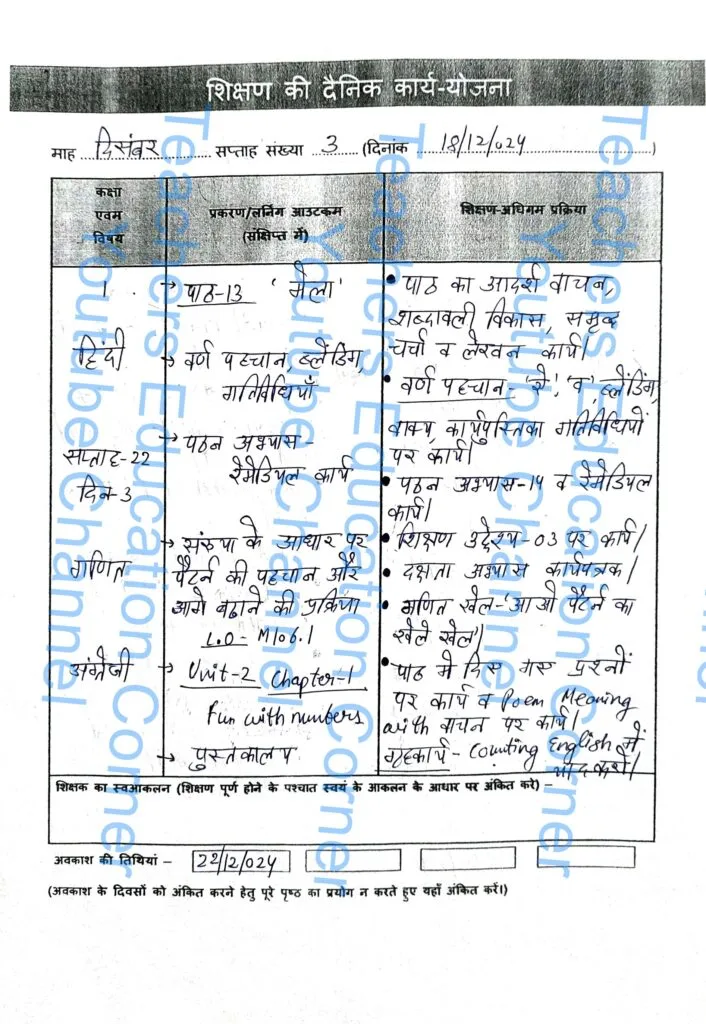 शिक्षण की दैनिक कार्य-योजना
माह दिसंबर सप्ताह संख्या 3 (दिनांक 18/12/024)
कक्षा
एवम
विषय
प्रकरण/लर्निंग आउटकम
(संक्षिप्त में)
शिक्षण-अधिगम प्रक्रिया
1
→ पाठ-13 'मेला'
• पाठ का आदर्श वाचन,
शब्दावली विकास, समृद्ध
चर्चा व लेखन कार्य।
हिंदी
→ वर्ण पहचान, ब्लेंडिंग,
गतिविधियाँ
• वर्ण पहचान- 'शे', 'व', ब्लेंडिंग,
वाक्य, कार्यपुस्तिका गतिविधियों
पर कार्य।
सप्ताह-22
दिन-3
→ पठन अभ्यास-
रेमेडियल कार्य
• पठन अभ्यास-14 व रेमेडियल
कार्य।
गणित
→ संख्या के आधार पर
पैटर्न की पहचान और
आगे बढ़ाने की प्रक्रिया
L.O- M106.1
• शिक्षण उद्देश्य-03 पर कार्य।
• दक्षता अभ्यास कार्यपत्रक।
• गणित खेल-'आओ पैटर्न का
खेले खेल'।
अंग्रेजी
→ Unit-2 Chapter-1
Fun with numbers
→ पुस्तकालय
• पाठ मे दिए गए प्रश्नों
पर कार्य व Poem Meaning
with वाचन पर कार्य।
गृहकार्य- Counting English में
याद करो।
शिक्षक का स्वआकलन (शिक्षण पूर्ण होने के पश्चात स्वयं के आकलन के आधार पर अंकित करे) –
अवकाश की तिथियां – 22/12/024
(अवकाश के दिवसों को अंकित करने हेतु पूरे पृष्ठ का प्रयोग न करते हुए यहाँ अंकित करें।)
Teachers Education Corner
Youtube Channel
Teachers Education Corner
Youtube Channel
Teachers Education Corner
Youtube Channel